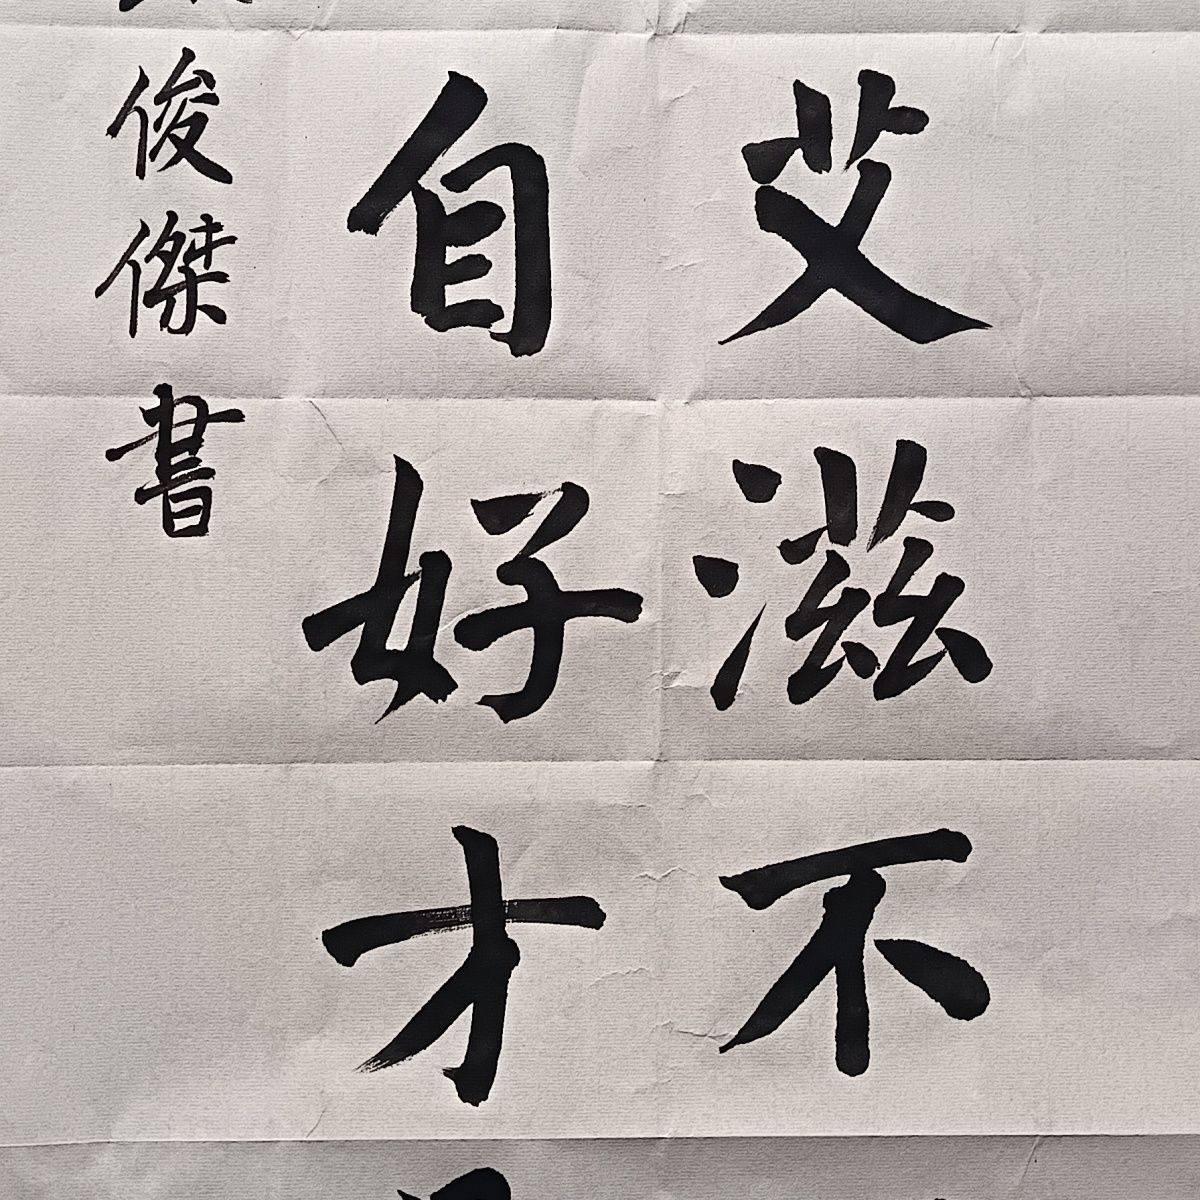 艾滋不
自好才
俊傑書